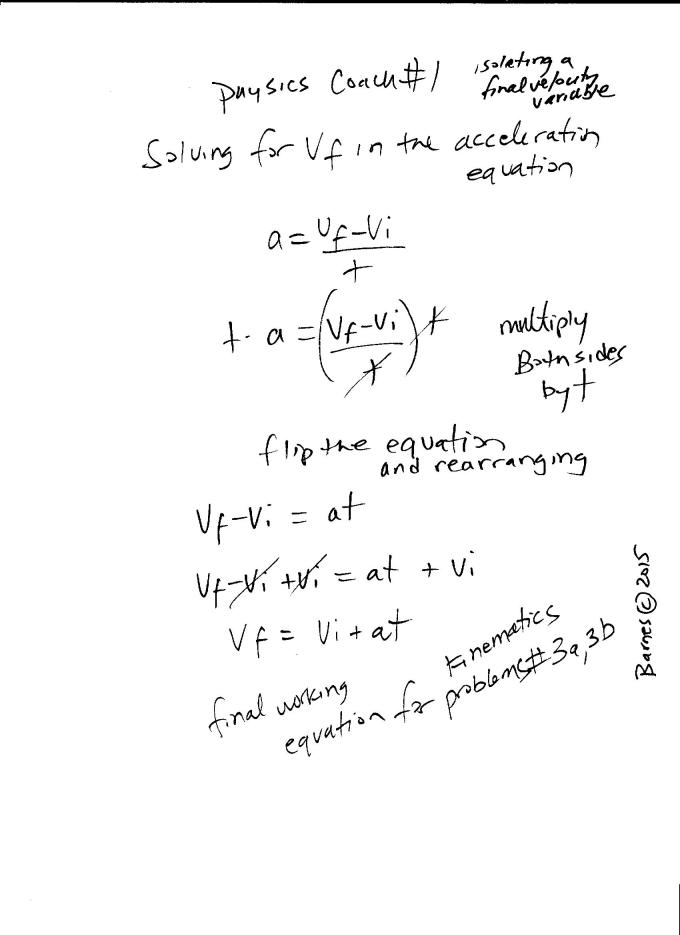 Physics Coach #1
isolating a
final velocity
variable
Solving for Vf in the acceleration
equation
a = Vf-Vi
t
t · a = (Vf-Vi) t
t
multiply
Both sides
by t
flip the equation
and rearranging
Vf-Vi = at
Vf-Vi +Vi = at + Vi
Vf = Vi + at
final working
equation for kinematics
problems # 3a, 3b
Barnes © 2015